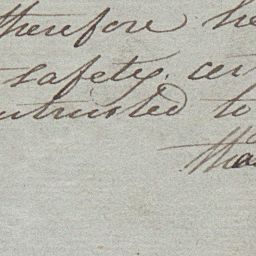 therefore he
safety. cer
entrusted to
tha